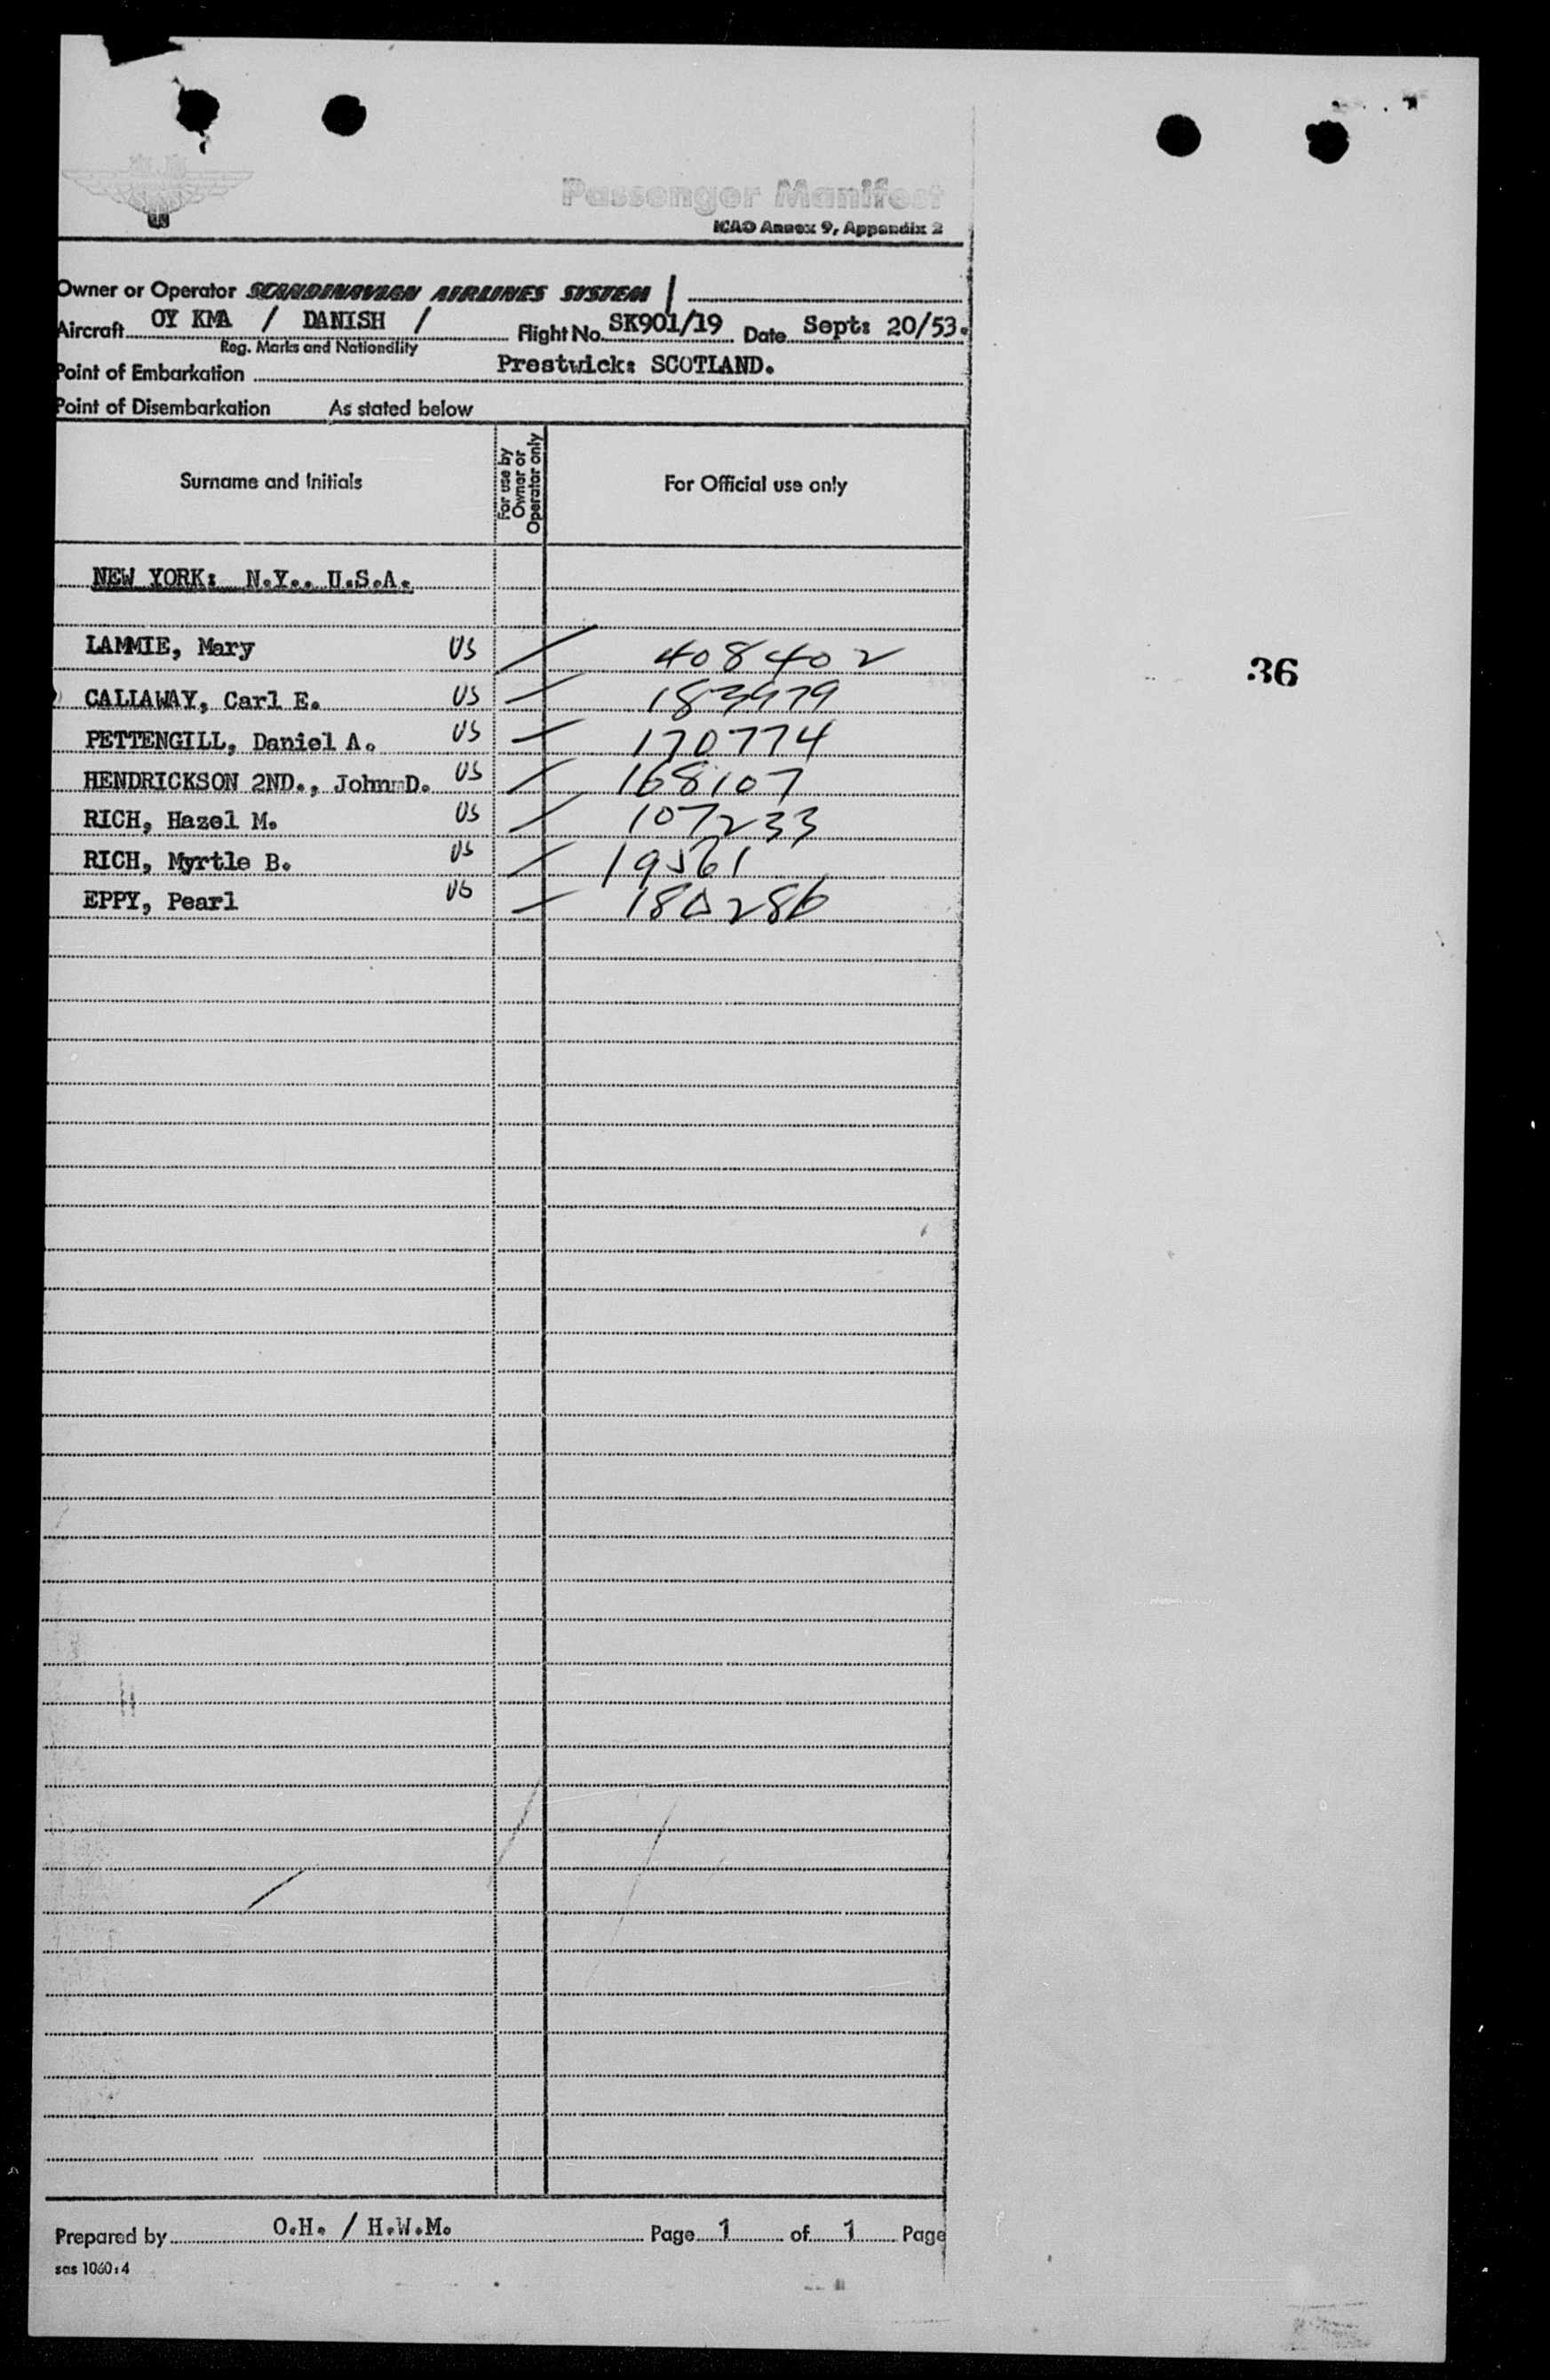 Passenger Manifest
ICAO Annex 9, Appendix 2
Owner or Operator SCANDINAVIAN AIRLINES SYSTEM /
Aircraft OY KMA / DANISH / Flight No. SK901/19 Date Sept: 20/53.
Reg. Marks and Nationality
Point of Embarkation Prestwick: SCOTLAND.
Point of Disembarkation As stated below
Surname and Initials For use by Owner or Operator only For Official use only
NEW YORK: N.Y.. U.S.A.
LAMMIE, Mary US / 408402
36
CALLAWAY, Carl E. US / 183979
PETTENGILL, Daniel A. US / 170774
HENDRICKSON 2ND., John D. US / 168107
RICH, Hazel M. US / 107233
RICH, Myrtle B. US / 19561
EPPY, Pearl US / 180286
Prepared by O.H. / H.W.M. Page 1 of 1 Page
sas 1060:4